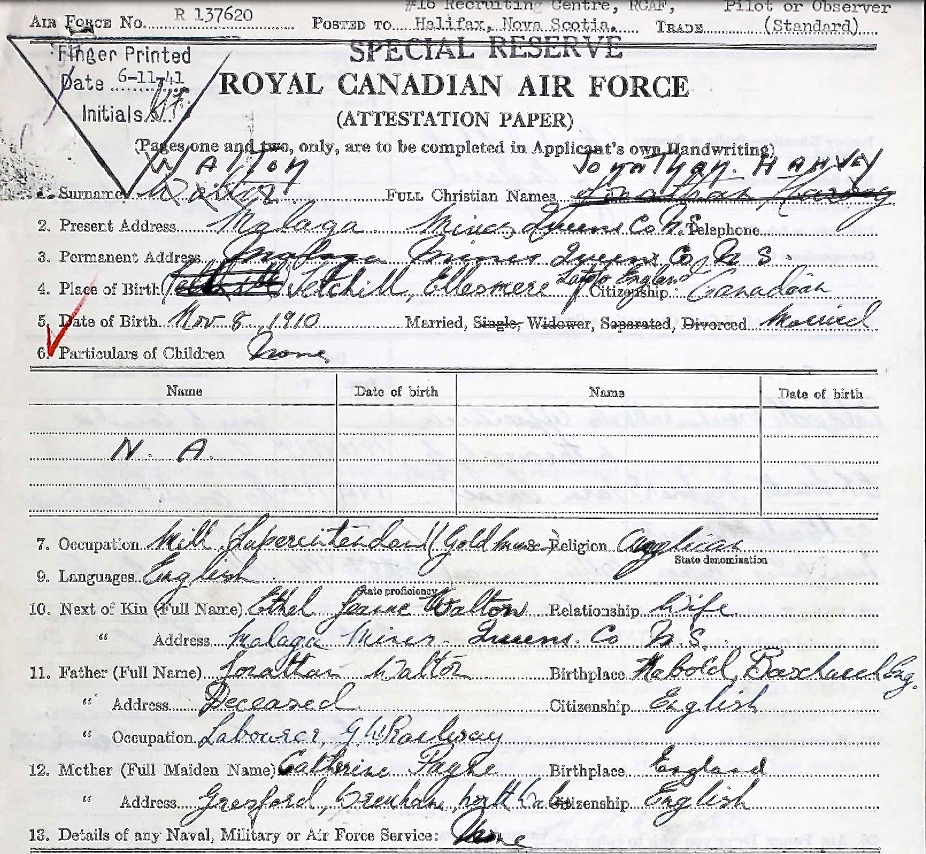 #16 Recruiting Centre, RCAF, Pilot or Observer
AIR FORCE No. R 137620 POSTED TO Halifax, Nova Scotia. TRADE (Standard)
SPECIAL RESERVE
Finger Printed
Date 6-11-41
Initials
ROYAL CANADIAN AIR FORCE
(ATTESTATION PAPER)
(Pages one and two, only, are to be completed in Applicant's own Handwriting)
WALTON JONATHAN. HARVEY
1. Surname Walton FULL CHRISTIAN NAMES Jonathan Harvey
2. Present Address Malaga Mines, Queens Co N.S. Telephone
3. Permanent Address Malaga Mines Queens Co. N.S.
4. Place of Birth Tetchill, Ellesmere England Citizenship Canadian
5. Date of Birth Nov 8, 1910 Married, Single, Widower, Separated, Divorced Married
6. Particulars of Children None
Name Date of birth Name Date of birth
N. A.
7. Occupation Mill Superintendant (Gold mine) Religion Anglican
State denomination
9. Languages English
State proficiency
10. Next of Kin (Full Name) Ethel Jeanne Walton Relationship Wife
" Address Malaga Mines. Queens. Co N.S.
11. Father (Full Name) Jonathan Walton Birthplace Eng.
" Address Deceased Citizenship English
" Occupation Labourer, G.W. Railway
12. Mother (Full Maiden Name) Catherine Birthplace England
" Address Gresford, Wrexham, North Wales Citizenship English
13. Details of any Naval, Military or Air Force Service: None